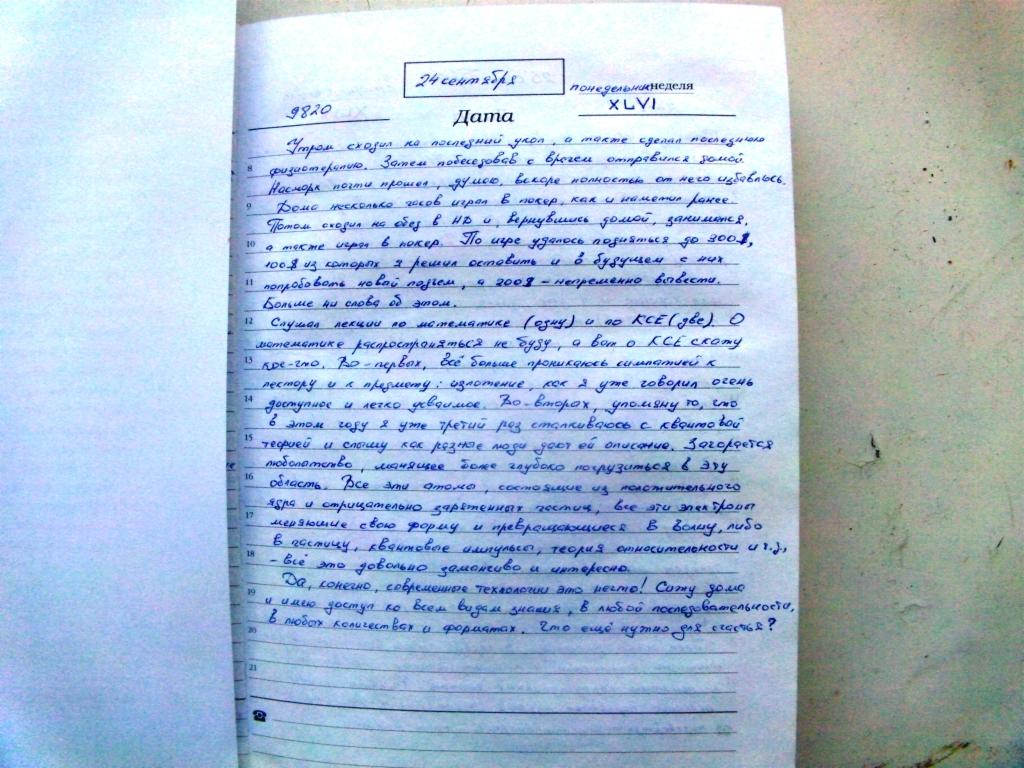 24 сентября
понедельник неделя
9820
XLVI
Дата
Утром сходил на последний укол, а также сделал последнюю
8 физиотерапию. Затем побеседовав с врачем отправился домой.
Насморк почти прошел, думаю, вскоре полностью от него избавлюсь.
9 Дома несколько часов играл в покер, как и наметил ранее.
Потом сходил на обед в НД и, вернувшись домой, занимался,
10 а также играл в покер. По игре удалось подняться до 300$,
100$ из которых я решил оставить и в будущем с них
11 попробовать новый подъем, а 200$ – непременно вывести.
Больше ни слова об этом.
12 Слушал лекции по математике (одну) и по КСЕ (две). О
математике распространяться не буду, а вот о КСЕ скажу
13 кое-что. Во-первых, всё больше проникаюсь симпатией к
лектору и к предмету: изложение, как я уже говорил очень
14 доступное и легко усваимое. Во-вторых, упомяну то, что
в этом году я уже третий раз сталкиваюсь с квантовой
15 теорией и слышу как разные люди дают ей описание. Загорается
любопытство, манящее более глубоко погрузиться в эту
16 область. Все эти атомы, состоящие из положительного
ядра и отрицательно заряженных частиц, все эти электроны
17 меняющие свою форму и превращающиеся в волну, либо
в частицу, квантовые импульсы, теория относительности и т.д.,
18 – всё это довольно заманчиво и интересно.
Да, конечно, современные технологии это нечто! Сижу дома
19 и имею доступ ко всем видам знания, в любой последовательности,
в любых количествах и форматах. Что ещё нужно для счастья?
20
21